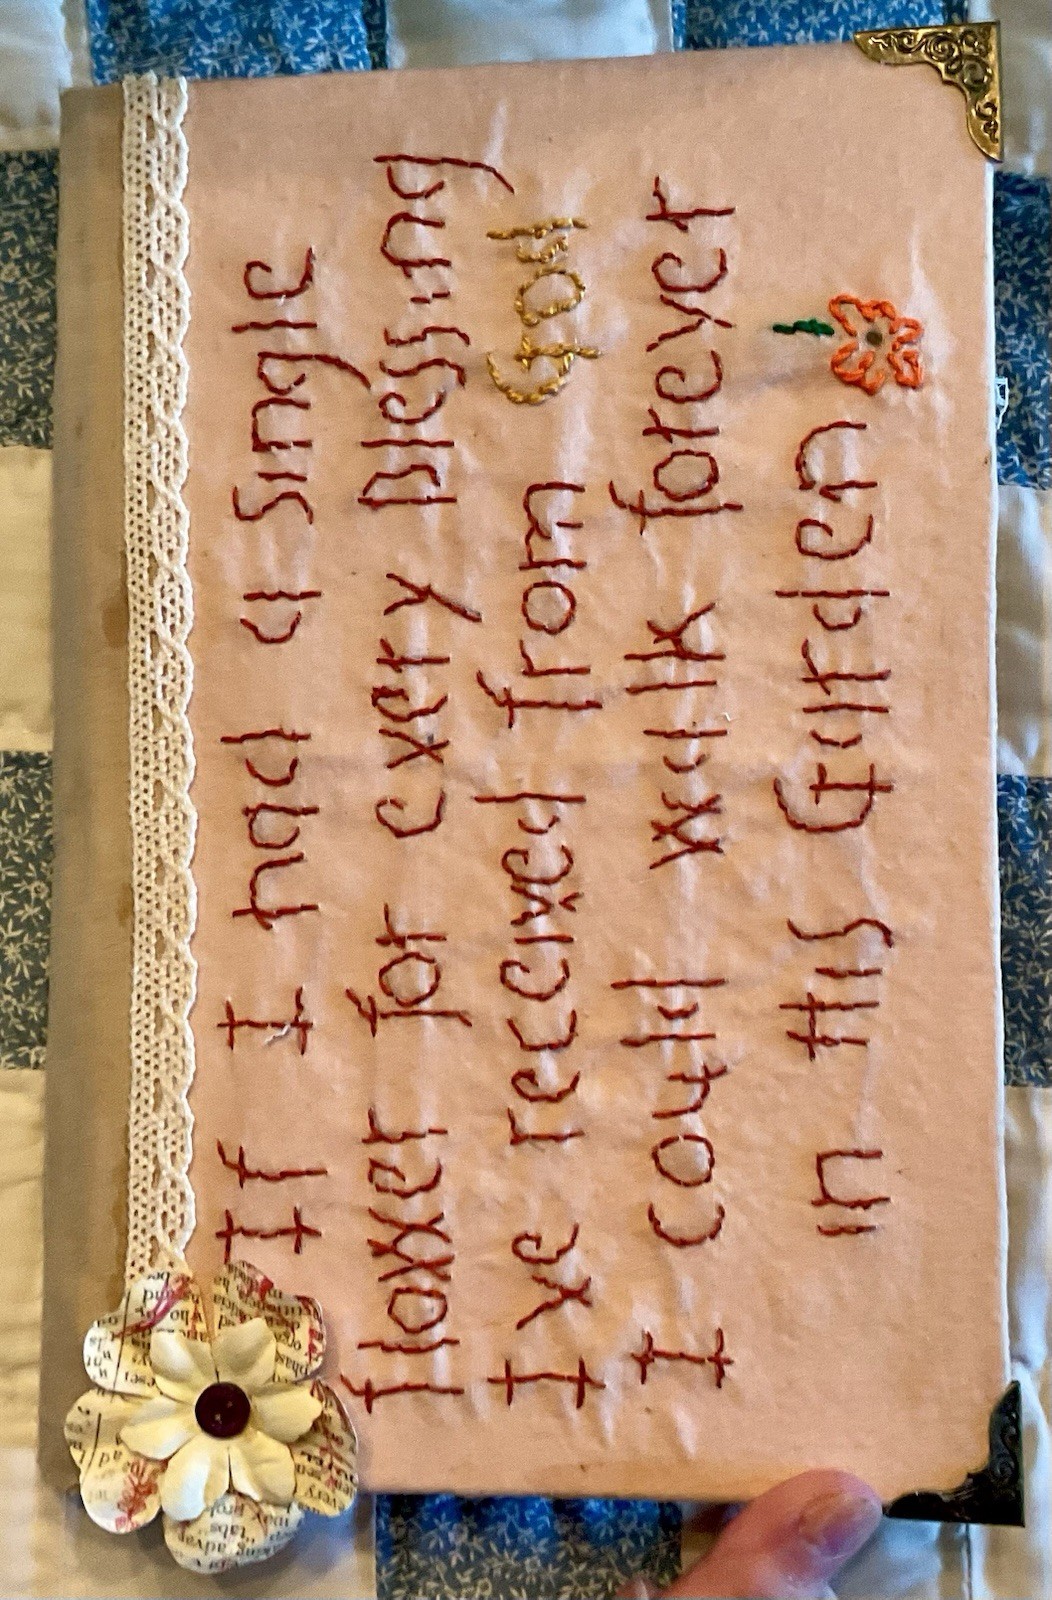 If I had a single
flower for every blessing
I've received from God
I could walk forever
in His Garden